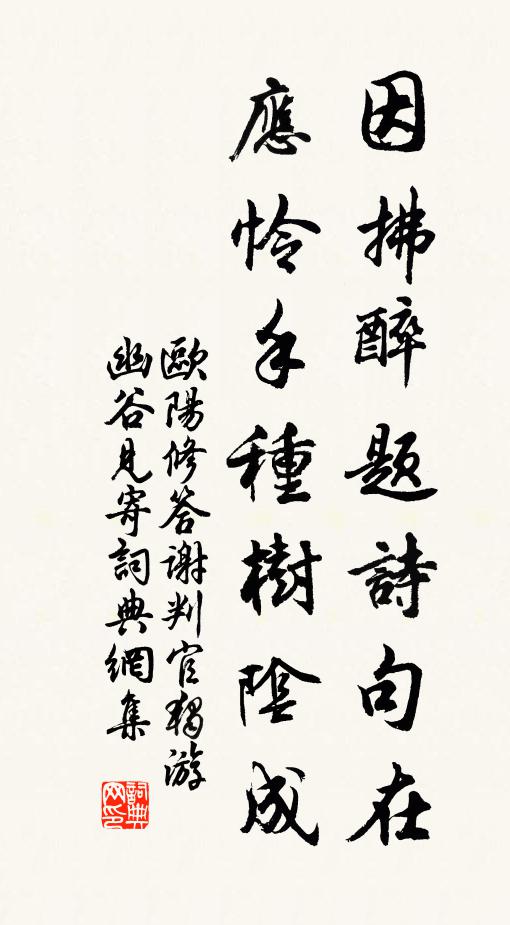 因拂醉題詩句在
應憐手種樹陰成
歐陽修答謝判官獨游
幽谷見寄詞典網集
詞典
网印